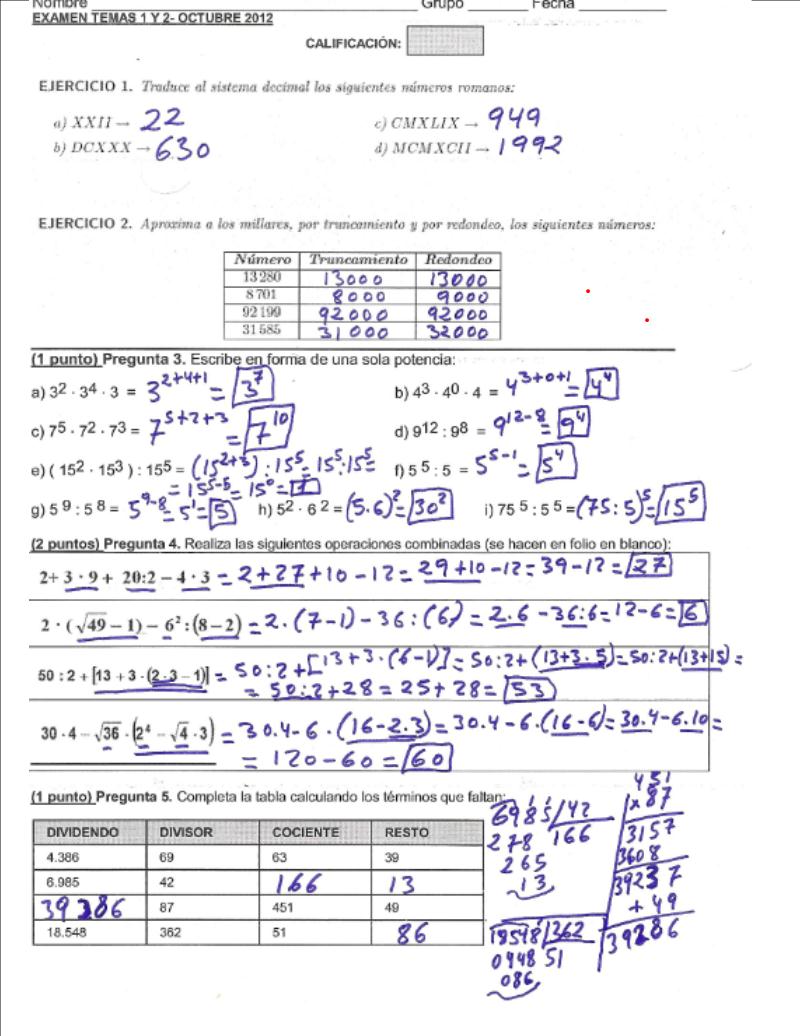 Nombre Grupo Fecha
EXAMEN TEMAS 1 Y 2- OCTUBRE 2012
CALIFICACIÓN:
EJERCICIO 1. Traduce al sistema decimal los siguientes números romanos:
a) XXII → 22 c) CMXLIX → 949
b) DCXXX → 630 d) MCMXCII → 1992
EJERCICIO 2. Aproxima a los millares, por truncamiento y por redondeo, los siguientes números:
Número Truncamiento Redondeo
13 280 13000 13000
8 701 8000 9000
92 199 92000 92000
31 585 31 000 32000
(1 punto) Pregunta 3. Escribe en forma de una sola potencia:
a) 3² · 3⁴ · 3 = 3²⁺⁴⁺¹ = 3⁷ b) 4³ · 4⁰ · 4 = 4³⁺⁰⁺¹ = 4⁴
c) 7⁵ · 7² · 7³ = 7⁵⁺²⁺³ = 7¹⁰ d) 9¹² : 9⁸ = 9¹²⁻⁸ = 9⁴
e) ( 15² · 15³ ) : 15⁵ = (15²⁺³) : 15⁵ = 15⁵ : 15⁵ = f) 5⁵ : 5 = 5⁵⁻¹ = 5⁴
= 15⁵⁻⁵ = 15⁰ = 1
g) 5⁹ : 5⁸ = 5⁹⁻⁸ = 5¹ = 5 h) 5² · 6² = (5.6)² = 30² i) 75⁵ : 5⁵ = (75 : 5)⁵ = 15⁵
(2 puntos) Pregunta 4. Realiza las siguientes operaciones combinadas (se hacen en folio en blanco):
2+ 3 · 9 + 20:2 – 4 · 3 = 2 + 27 + 10 – 12 = 29 + 10 – 12 = 39 – 12 = 27
2 · (√49 – 1) – 6² : (8 – 2) = 2 · (7–1) – 36 : (6) = 2.6 – 36:6 = 12 – 6 = 6
50 : 2 + [13 + 3 · (2 · 3 – 1)] = 50 : 2 + [13 + 3 · (6–1)] = 50 : 2 + (13+3·5) = 50 : 2 + (13+15) =
= 50:2 + 28 = 25 + 28 = 53
30 · 4 – √36 · (2⁴ – √4 · 3) = 30.4 – 6 · (16 – 2.3) = 30.4 – 6.(16–6) = 30.4 – 6.10 =
= 120 – 60 = 60
(1 punto) Pregunta 5. Completa la tabla calculando los términos que faltan:
DIVIDENDO DIVISOR COCIENTE RESTO
4.386 69 63 39
6.985 42 166 13
39286 87 451 49
18.548 362 51 86
6985 42
278 166
265
13
451
x 87
3157
3608
39237
+ 49
39286
18548 362
0448 51
086